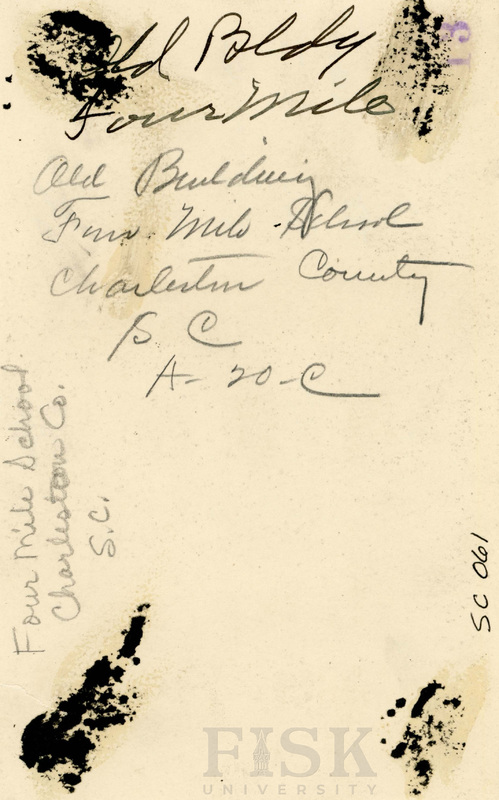 Old Bldg
Four Mile
13
Old Building
Four Mile School
Charleston County
S C
A-20-C
Four Mile School
Charleston Co.
S.C.
SC 061
FISK
UNIVERSITY